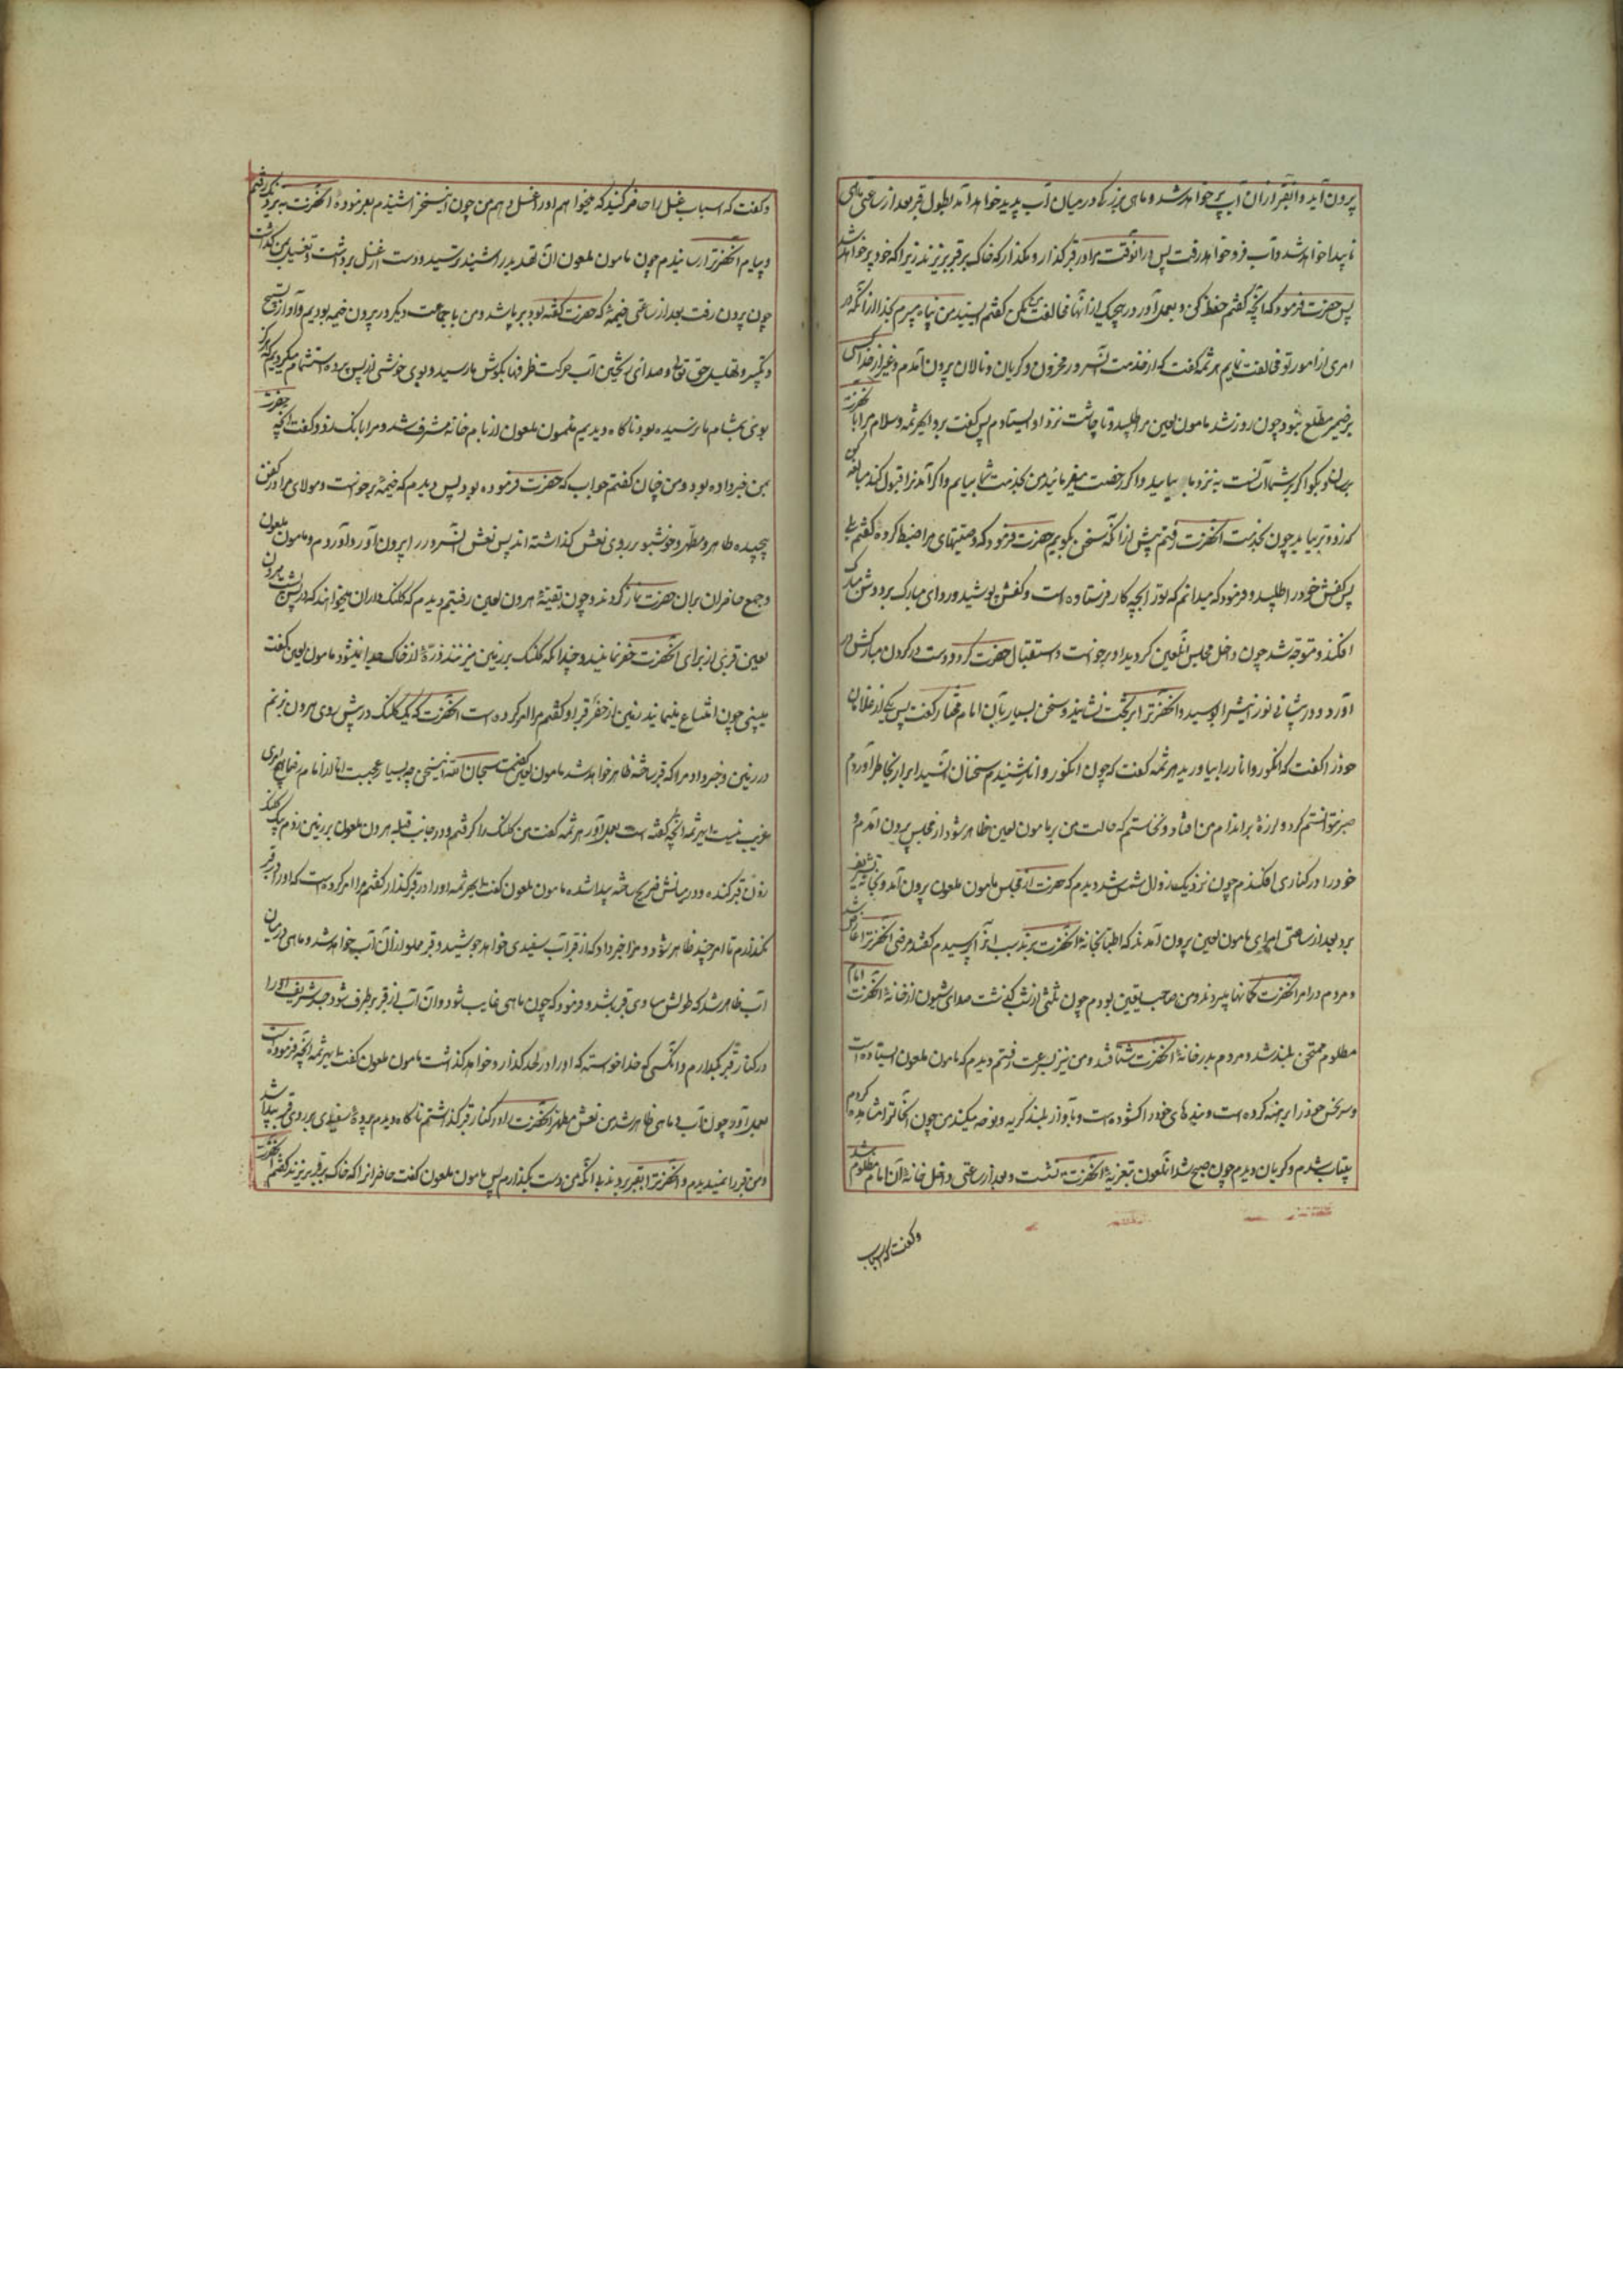 بیرون آید و آن قبر از آن آب پر خواهد شد و ماهی بزرگی در میان آب پدید خواهد آمد بطول قبر بعد از ساعتی ماهی
ناپیدا خواهد شد و آب فرو خواهد رفت پس در آنوقت مرا در قبر گذار و مگذار که خاک بر قبر بریزند زیرا که خود پر خواهد شد
پس حضرت فرمود که آنچه گفتم حفظ کن و بعمل آور و در هیچیک از آنها مخالفت مکن گفتم ای سید من پناه میبرم بخدا از آنکه در
امری از امور تو مخالفت نمایم هرثمه گفت که از خدمت آن سرور محزون و گریان و نالان بیرون آمدم و غیر از خدا کسی
بر ضمیر مطلع نبود چون روز شد مامون لعین مرا طلبید و تا چاشت نزد او ایستادم پس گفت برو ای هرثمه و سلام مرا بآنحضرت
برسان و بگو اگر بر شما آسان است به نزد ما بیایید و اگر رخصت میفرمایید من بخدمت شما بیایم و اگر آمدن را قبول کند مبالغه کن
که زودتر بیاید چون بخدمت آنحضرت رفتم پیش از آنکه سخن بگویم حضرت فرمود که وصیتهای مرا ضبط کرده گفتم بلی
پس کفش خود را طلبید و فرمود که میدانم که تو را بچه کار فرستاده است و کفش پوشید و ردای مبارک بر دوش مبارک
افکند و متوجه شد چون داخل مجلس آن لعین گردید او برخواست و استقبال حضرت کرد و دست در گردن مبارکش در
آورد و در پیشانی نورانیش را بوسید و آنحضرت را بر تخت نشانید و سخن بسیار بآن امام مختار گفت پس یکی از غلامان
خود را گفت که انگور و انار را بیاورید هرثمه گفت که چون انگور و انار شنیدم سخنان آن سید ابرار بخاطر آوردم
صبر نتوانستم کرد و لرزه بر اندام من افتاد و نخواستم که حالت من بر مامون لعین ظاهر شود از مجلس بیرون آمدم و
خود را در کناری افکندم چون نزدیک زوال شمس شد دیدم که حضرت از مجلس مامون ملعون بیرون آمد و بخانه تشریف
برد بعد از ساعتی امرای مامون لعین بیرون آمدند که اطبا بخانه آنحضرت برند سبب آنرا پرسیدم گفتند مرضی آنحضرت را عارض شد
و مردم در امر آنحضرت گمانها میبردند و من صاحب یقین بودم چون ثلثی از شب گذشت صدای شیون از خانه آنحضرت امام
مظلوم ممتحن بلند شد و مردم بدر خانه آنحضرت شتافتند و من نیز بسرعت رفتم دیدم که مامون ملعون ایستاده است
و سر نحس خود را برهنه کرده است و بندهای خود را گشوده است و بآواز بلند گریه و نوحه میکند من چون آنحالت را مشاهده کردم
بیتاب شدم و گریان دیدم چون صبح شد آن ملعون بتعزیه آنحضرت نشست و بعد از ساعتی داخل خانه آن امام مظلوم شد
و گفت که اسباب
و گفت که اسباب غسل را حاضر کنید که میخواهم او را غسل دهم من چون این سخن را شنیدم بفرموده آنحضرت به نزدیک او رفتم
و پیام آنحضرت را رسانیدم چون مامون ملعون آن تهدید را شنید ترسید و دست از غسل برداشت و تغسیل بمن گذاشت
چون بیرون رفت بعد از ساعتی خیمه که حضرت گفته بود برپا شد و من با جماعت دیگر در بیرون خیمه بودیم و آواز تسبیح
و تکبیر و تهلیل حق تعالی و صدای ریختن آب حرکت ظرفها بگوش ما رسید و بوی خوشی از پس پرده استشمام میکردیم که هرگز
بوی بمشام ما نرسیده بود ناگاه دیدیم مامون ملعون از بام خانه مشرف شد و مرا بانگ زد و گفت آنچه حضرت
بمن خبر داده بود و من چنان گفتم جواب که حضرت فرموده بود پس دیدم که خیمه برخواست و مولای مرا در کفن
پیچیده طاهر و مطهر و خوشبو بر روی نعش گذاشته اند پس نعش آن سرور را بیرون آوردم و مامون ملعون
و جمع حاضران بر آن حضرت نماز کردند و چون بقبه هرون لعین رفتیم دیدم که کلنگ داران میخواهند که در پس پشت هرون
لعین قبری از برای آنحضرت حفر نمایند و چندانکه کلنگ بر زمین میزنند ذره از خاک جدا نمیشود مامون لعین گفت
میبینی چون امتناع مینماید زمین از حفر قبر او گفتم مرا امر کرده است آنحضرت که یک کلنگ در پیش روی هرون بزنم
در زمین و خبر داد مرا که قبر ساخته ظاهر خواهد شد مامون لعین گفت سبحان الله این سخن چه بسیار عجیب است اما از امام رضا هیچ امری
غریب نیست ای هرثمه آنچه گفته است بعمل آور هرثمه گفت من کلنگ را گرفتم و در جانب قبله هرون ملعون بر زمین زدم بیک کلنگ
زدن قبر کنده و در میانش ضریح ساخته پیدا شد مامون ملعون گفت ای هرثمه او را در قبر گذار گفتم مرا امر کرده است که او را در قبر
نگذارم تا امر چند ظاهر شود و مرا خبر داد که از قبر آب سفیدی خواهد جوشید و قبر مملو از آن آب خواهد شد و ماهی در میان
آب ظاهر شد که طولش مساوی قبر باشد و فرمود که چون ماهی غایب شود و آن آب از قبر برطرف شود جسد شریف او را
در کنار قبر بگذارم و آنکسی که خدا خواسته که او را در لحد گذارد خواهد گذاشت مامون ملعون گفت ای هرثمه آنچه فرموده است
بعمل آور چون آب و ماهی ظاهر شد من نعش مطهر آنحضرت را در کنار قبر گذاشتم ناگاه دیدم پرده سفیدی بر روی قبر پیدا شد
و من قبر را نمیدیدم و آنحضرت را بقبر بردند بی آنکه من دست بگذارم پس مامون ملعون گفت حاضرانرا که خاک بر قبر بریزند گفتم آنحضرت